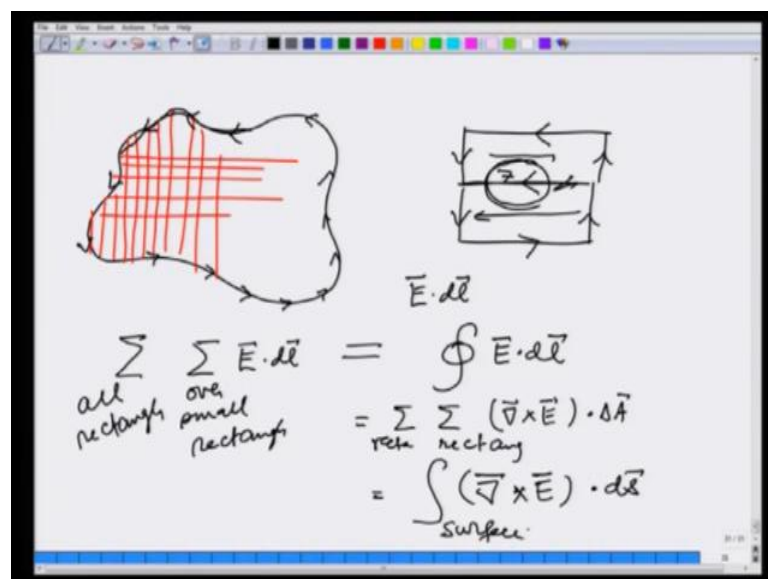 File Edit View Insert Actions Tools Help
B I
E⃗·dl⃗
∑ ∑ E⃗·dl⃗ = ∮ E⃗·dl⃗
all rectangles over small rectangles
= ∑ ∑ (∇⃗×E⃗)·ΔA⃗
recta rectang
= ∫ (∇⃗×E⃗)·ds⃗
surface